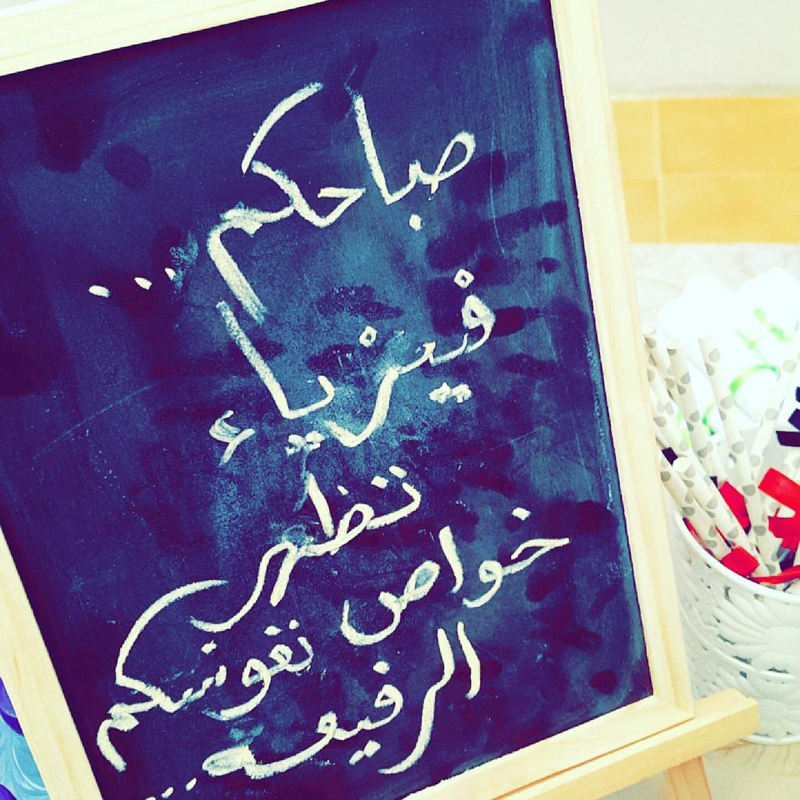 صباحكم ...
فيزياء
تظهر
خواص نفوسكم
الرفيعه ...